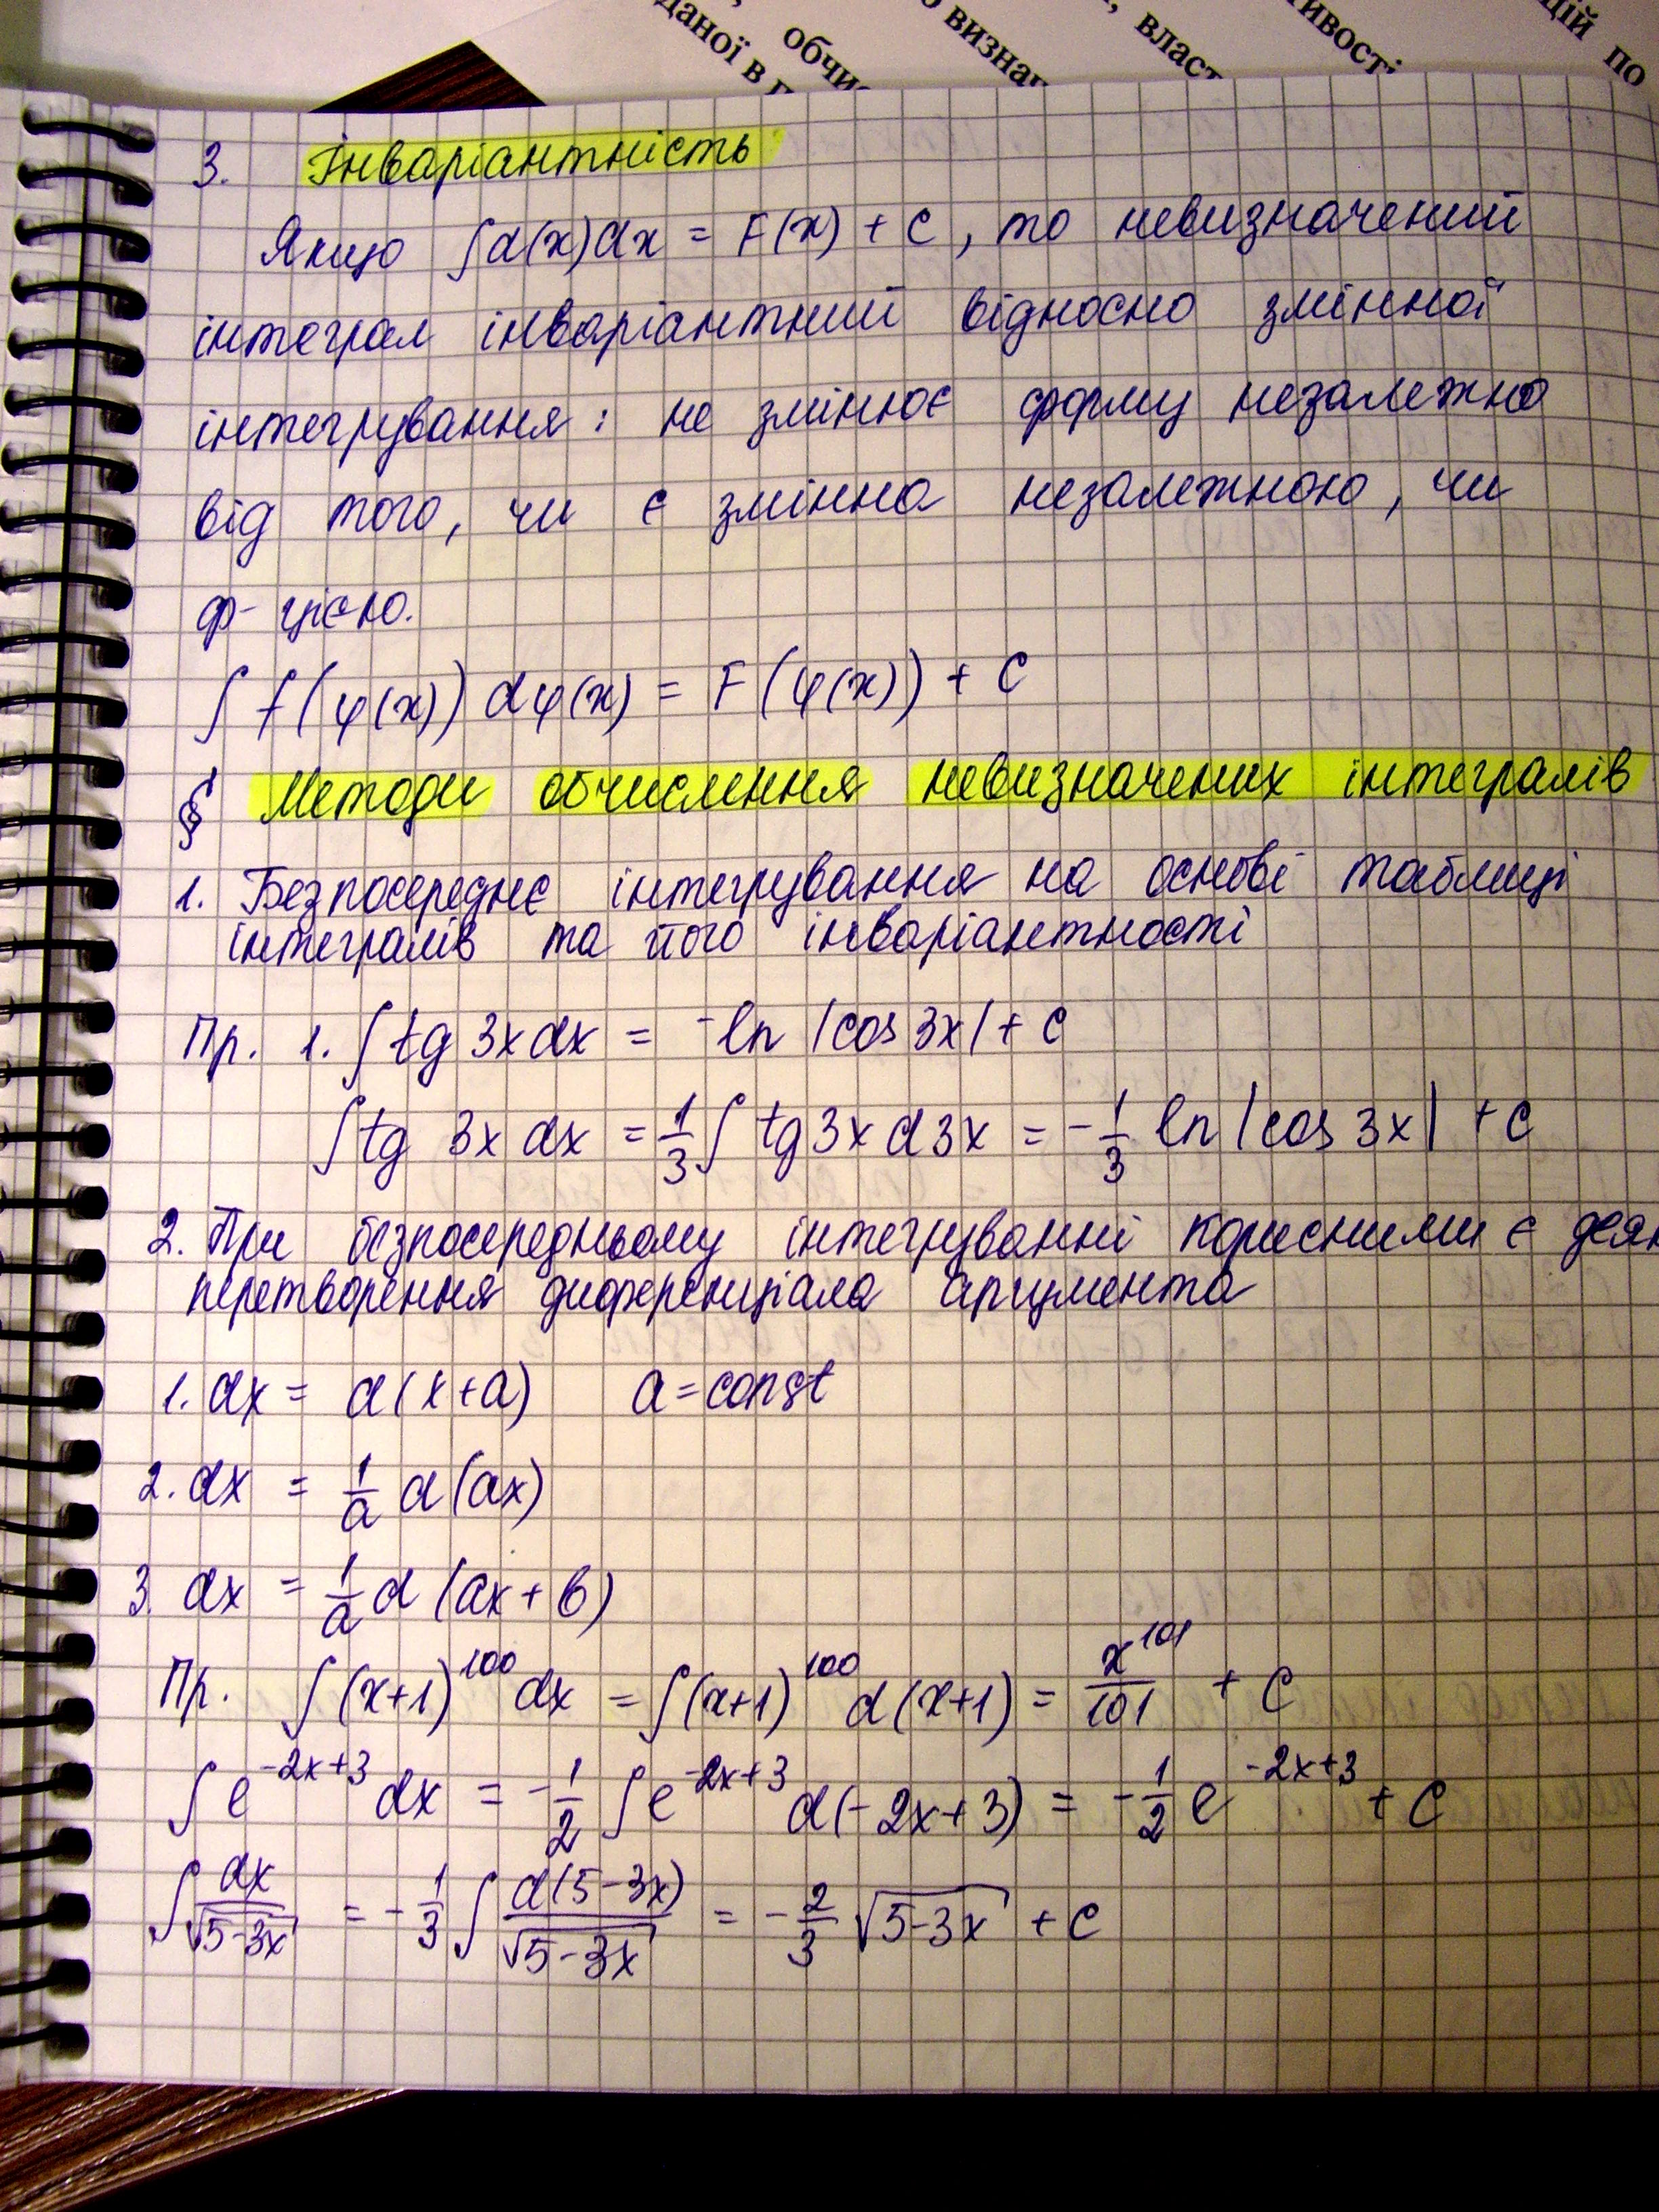 даної в
обчи
визна
, власт
ивості
цій по
3. Інваріантність
Якщо ∫d(x)dx = F(x) + C, то невизначений
інтеграл інваріантний відносно змінної
інтегрування: не змінює форму незалежно
від того, чи є змінна незалежною, чи
ф-цією.
∫ f(φ(x)) dφ(x) = F(φ(x)) + C
§ Методи обчислення невизначених інтегралів
1. Безпосереднє інтегрування на основі таблиці
інтегралів та його інваріантності
Пр. 1. ∫ tg 3x dx = -ln |cos 3x| + C
∫ tg 3x dx = 1/3 ∫ tg 3x d3x = - 1/3 ln |cos 3x| + C
2. При безпосередньому інтегруванні корисними є деяк
перетворення диференціала аргумента
1. dx = d(x+a) a = const
2. dx = 1/a d(ax)
3. dx = 1/a d(ax + b)
Пр. ∫ (x+1)^100 dx = ∫ (x+1)^100 d(x+1) = x^101/101 + C
∫ e^(-2x+3) dx = - 1/2 ∫ e^(-2x+3) d(-2x+3) = - 1/2 e^(-2x+3) + C
∫ dx/√(5-3x) = - 1/3 ∫ d(5-3x)/√(5-3x) = - 2/3 √(5-3x) + C